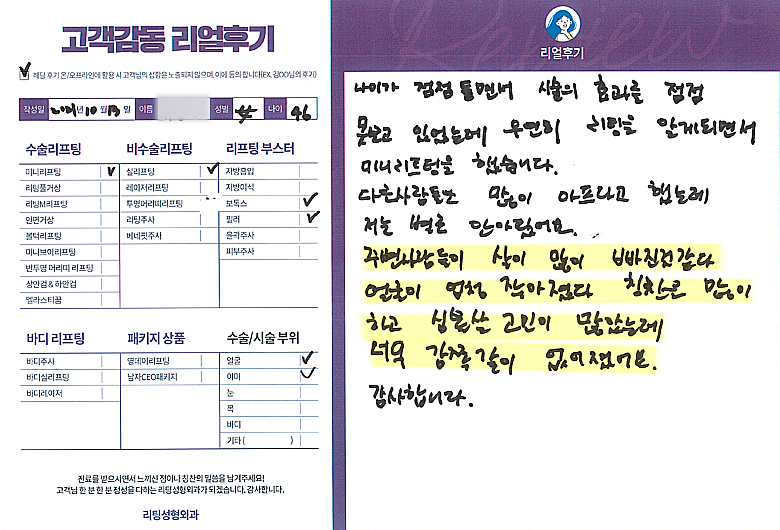 고객감동 리얼후기
해당 후기 온/오프라인에 활용 시 고객님의 성함은 노출되지 않으며, 이에 동의 합니다(EX. 김OO님의 후기)
작성일 년 10 월 13 일 이름 성별 女 나이 46
수술리프팅
미니리프팅
리팅풀거상
리팅M리프팅
안면거상
볼턱리프팅
미니브이리프팅
반투명 머리띠 리프팅
상안검 & 하안검
엘라스티꿈
비수술리프팅
실리프팅
레이저리프팅
투명머리띠리프팅
리팅주사
베네핏주사
리프팅 부스터
지방흡입
지방이식
보톡스
필러
윤곽주사
피부주사
바디 리프팅
바디주사
바디실리프팅
바디레이저
패키지 상품
영데이리프팅
남자CEO패키지
수술/시술 부위
얼굴
이마
눈
목
바디
기타 ( )
진료를 받으시면서 느끼신 점이나 칭찬의 말씀을 남겨주세요!
고객님 한 분 한 분 정성을 다하는 리팅성형외과가 되겠습니다. 감사합니다.
리팅성형외과
Review
리얼후기
나이가 점점 들면서 시술의 효과를 점점
못보고 있었는데 우연히 리팅을 알게되면서
미니리프팅을 했습니다.
다른사람들은 많이 아프다고 했는데
저는 별로 안아팠어요.
주변사람들이 살이 많이 빠진것같다
얼굴이 엄청 작아졌다 칭찬도 많이
하고 심부볼 고민이 많았는데
너무 감쪽같이 없어졌어요.
감사합니다.